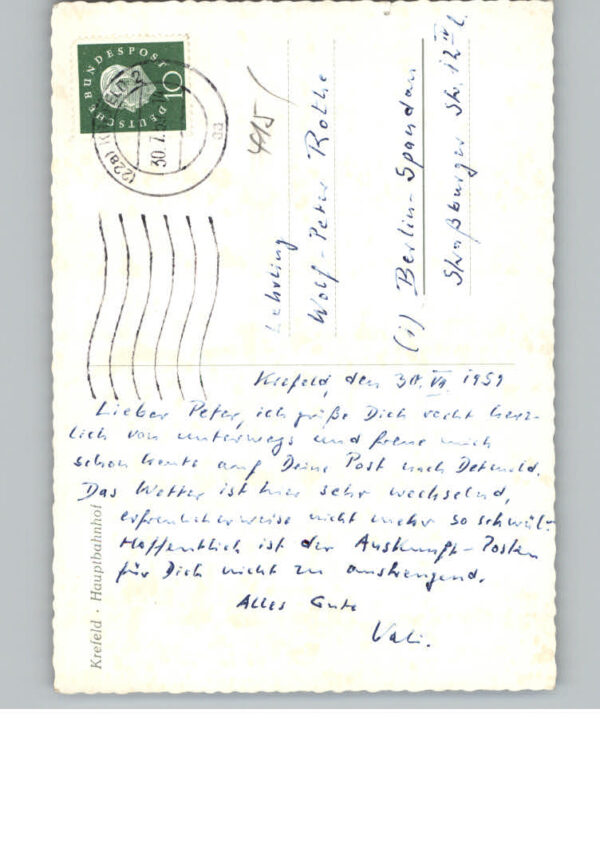 DEUTSCHE BUNDESPOST
10
(22a) KREFELD 2
30.7.
aa
415
Lehrling
Wolf-Peter Rothe
(1) Berlin-Spandau
Straßburger Str. 12
Krefeld, den 30. VII. 1959
Lieber Peter, ich grüße Dich recht herz-
lich von unterwegs und freue mich
schon heute auf Deine Post nach Detmold.
Das Wetter ist hier sehr wechselnd,
erfreulicherweise nicht mehr so schwül.
Hoffentlich ist der Auskunft-Posten
für Dich nicht zu anstrengend.
Alles Gute
Vati.
Krefeld · Hauptbahnhof